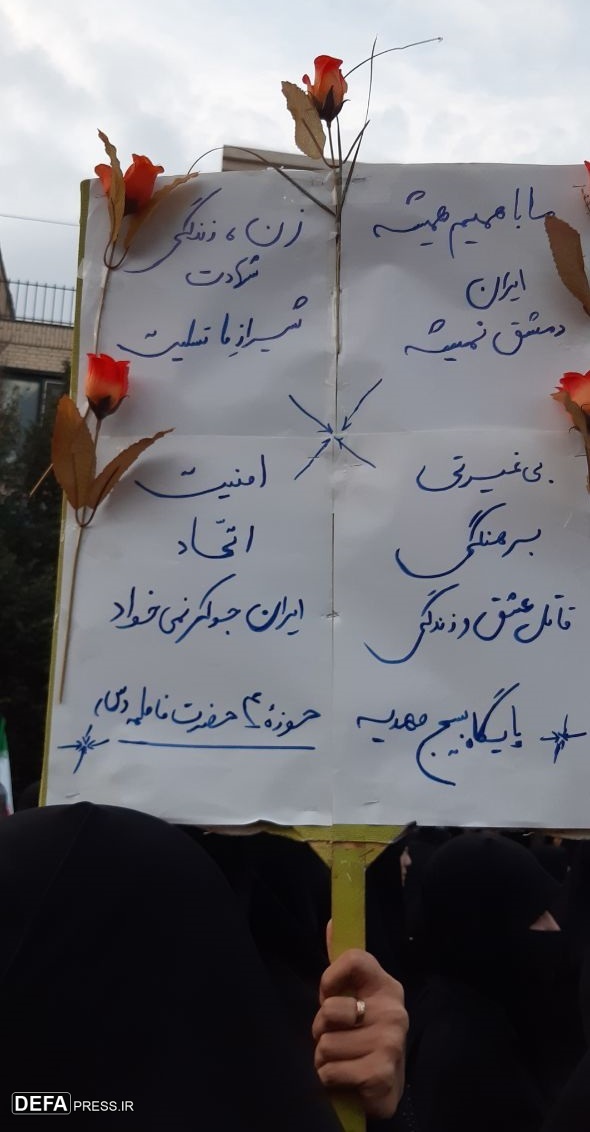 ما با همیم همیشه
ایران
دمشق نمیشه
زن، زندگی
شهادت
شیراز ما تسلیت
بی غیرتی
برهنگی
قاتل عشق و زندگی
امنیت
اتّحاد
ایران جوکر نمی خواد
پایگاه بسیج مهدیه
حوزهٔ ۴ حضرت فاطمه (س)
DEFAPRESS.IR